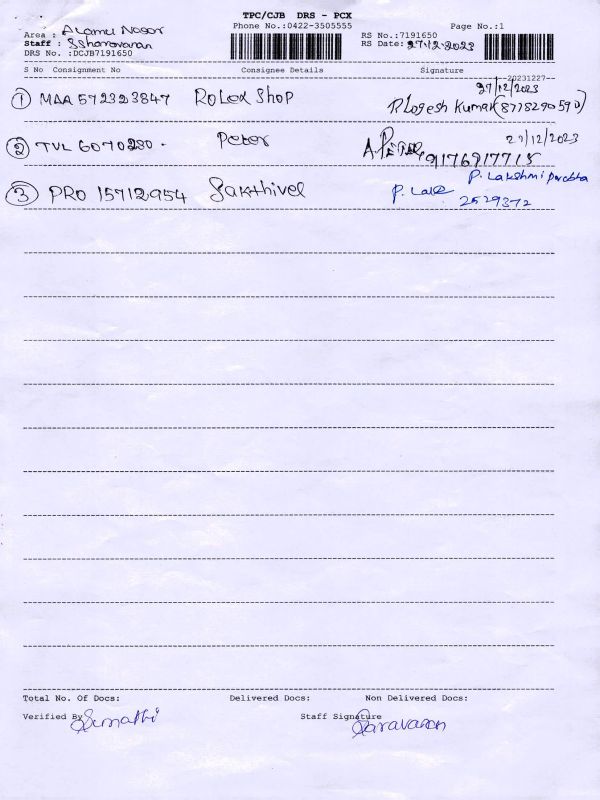 TPC/CJB DRS - PCX
Phone No.:0422-3505555 Page No.:1
Area : Alamu Nagar
Staff : S Sharavanan
DRS No. :DCJB7191650
RS No.:7191650
RS Date: 27-12-2023
S No Consignment No Consignee Details Signature
20231227
27/12/2023
1 MAA 572323847 Rolex Shop R. Logesh Kumar (8778290590)
27/12/2023
2 TVL 6070280. Peter A. Peter, 9176917715
P. Lakshmi Prabha
3 PRO 15712954 Sakthivel P. Lak 2529372
Total No. Of Docs: Delivered Docs: Non Delivered Docs:
Verified By Sumathi Staff Signature Saravanan